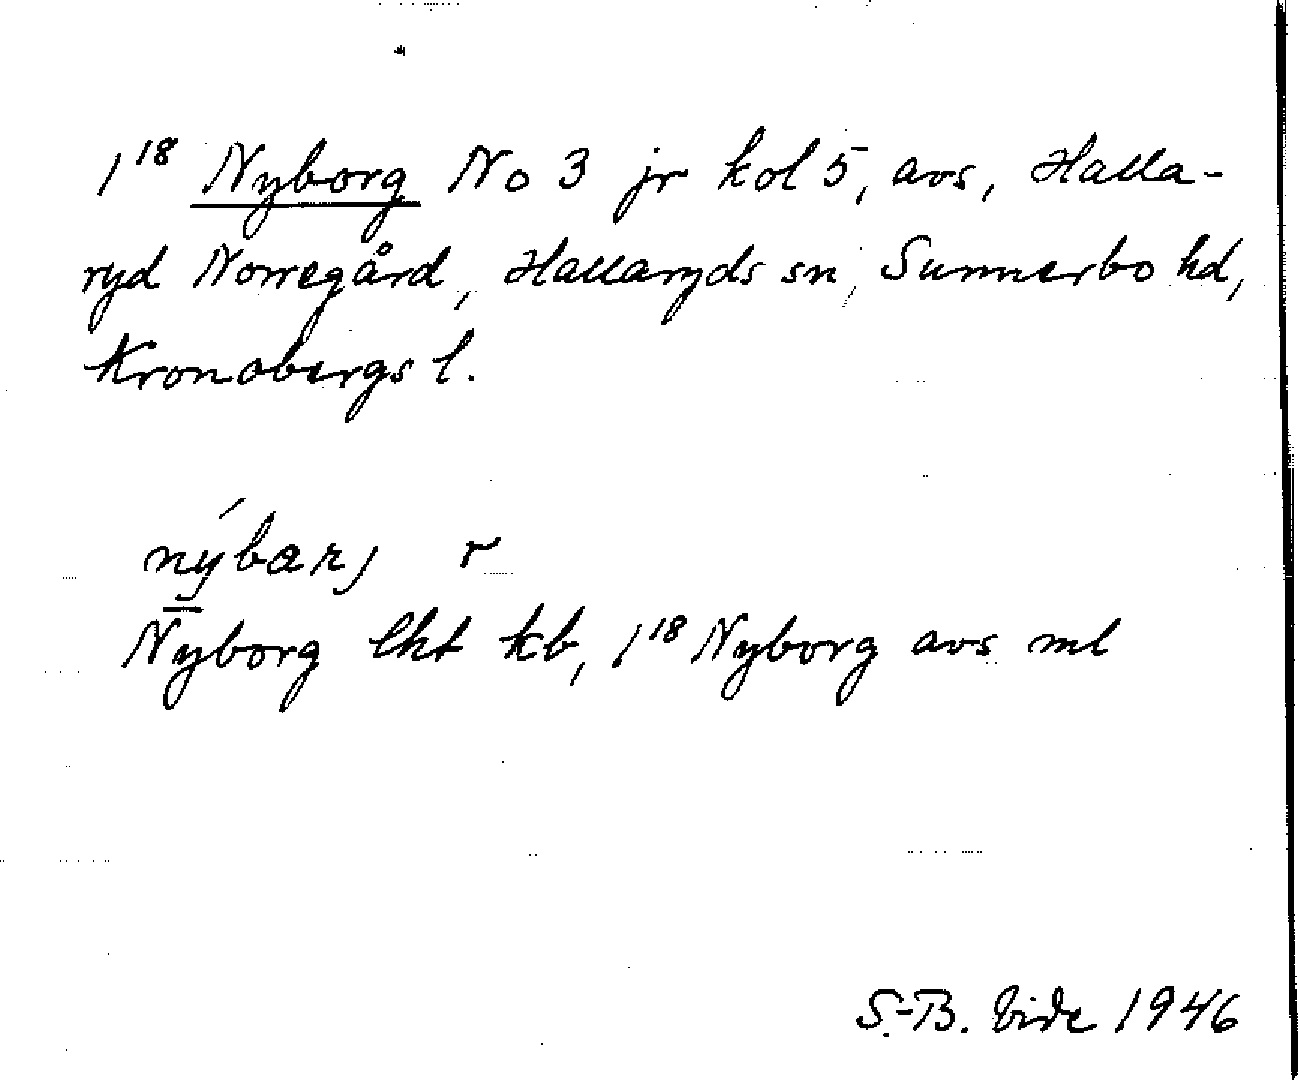 1¹⁸ Nyborg No 3 jr kol 5, avs, Halla-
ryd Norregård, Hallaryds sn, Sunnerbo hd,
Kronobergs l.
nýbarj r
Nyborg lht kb, 1¹⁸ Nyborg avs ml
S.-B. Vide 1946